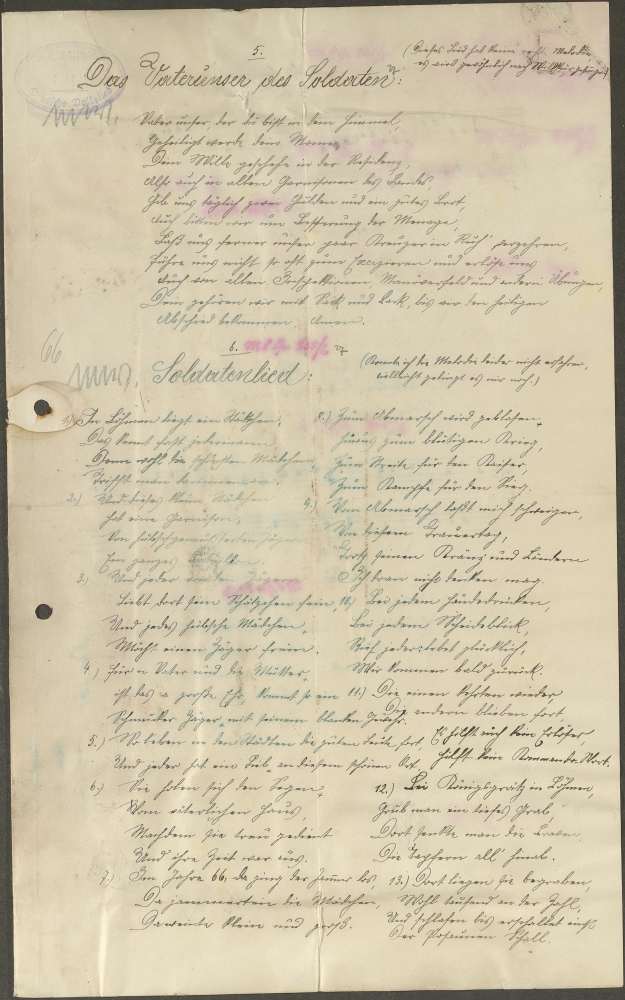 5.
(Dieses Lied hat keine recht. Melodie
es wird gewöhnlich nach
Das Vaterunser des Soldaten:
Vater unser, der du bist in dem Himmel,
Geheiligt werde dein Namen
Dein Wille geschehe in der Residenz,
Als auch in allen Garnisonen des Landes,
Gib uns täglich zwei Gulden und ein gutes Brot,
Auch bitten wir um Besserung der Menage,
Laß uns ferner unser paar Kreuzer in Ruh' verzehren,
Führe uns nicht so oft zum Exerzieren und erlöse uns
Auch von allen Inspektionen, Manöverfeld und andern Übungen,
Dein gehören wir mit Sack und Pack, bis wir den heiligen
Abschied bekommen. Amen.
66
6.
Soldatenlied:
(Konnte ich die Melodie leider nicht erfahren,
vielleicht gelingt es mir noch.)
1.) In Böhmen liegt ein Städtchen,
Das kennt fast jedermann
Denn wohl die schönsten Mädchen,
Trifft man
2.) Und dieses kleine Städtchen
hat eine Garnison,
Von
Ein ganzes Bataillon.
3.) Und jeder von den Jägern
Liebt dort sein Schätzchen fein,
Und jedes hübsche Mädchen,
Möcht einen Jäger frein.
4.) Für'n Vater und die Mutter,
ist das a große Ehr, kommt so ein
Schmucker Jäger, mit seinem blanken Gewehr.
5.) So leben in den Städten die guten Leute fort,
Und jeder hat ein Lieb, an diesem schönen Ort.
6.) Sie holen sich den Segen,
Vom väterlichen Haus,
Nachdem sie treu gedient
Und ihre Zeit war aus.
7.) Im Jahre 66, da ging der Jammer los,
Da jammerten die Mädchen,
Da weinte Klein und groß.
8.) Zum Abmarsch wird geblasen,
Hinaus zum blutigen Krieg,
Zum Streite für den Kaiser,
Zum Kampfe für den Sieg.
9.) Vom Abmarsch laßt mich schweigen,
Von diesem Trauertag,
Trotz seinen Kränz und Bändern
Ich dran nicht denken mag.
10.) Bei jedem Händedrücken,
Bei jedem Scheideblick,
Rief jeder glücklich,
Wir kommen bald zurück.
11.) Die einen kehrten wieder,
Die andern blieben fort
Es hilft auch kein Erlöser,
Hilft kein Kommando Wort.
12.) Bei Königgrätz in Böhmen,
Grub man ein tiefes Grab,
Dort senkte man die Braven,
Die Tapfern all' hinab.
13.) Dort liegen sie begraben,
Wohl tausend an der Zahl,
Und schlafen bis erschallet einst
Der Posaunen Schall.